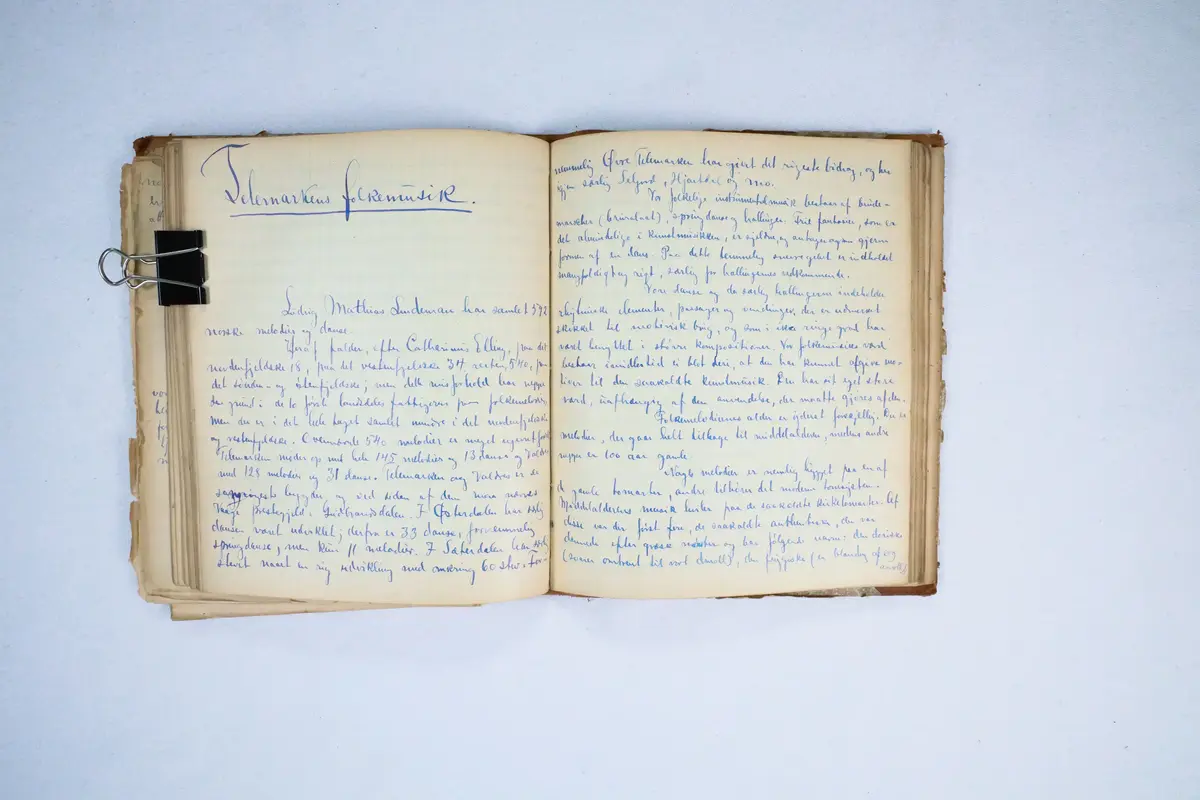 Telemarkens folkemusik.
Ludvig Mathias Lindeman har samlet 592
norske melodier og danse.
Heraf falder, efter Catharinus Elling, paa det
nordenfjeldske 18, paa det vestenfjeldske 34, resten, 540, paa
det sønden- og østenfjeldske; men dette misforhold har neppe
sin grund i de to først landsdeles fattigere paa folkemelodier,
men der er i det hele taget samlet mindre i det nordenfjeldske
og vestenfjeldske. Ovennævnte 540 melodier er meget
Telemarken møder op med hele 145 melodier og 13 danse og Valdres
med 123 melodier og 31 danse. Telemarken og Valdres er de
sangrigeste bygder, og ved siden af dem maa nævnes
Vaage prestegjeld i Gudbrandsdalen. I Østerdalen har særlig
dansen været udviklet; derfra er 33 danse, fornemmelig
springdanse, men kun 11 melodier. I Sæterdalen har
stevet naaet en rig udvikling med omkring 60 stev. For-
nemmelig Øvre Telemarken har gjort det rigeste bidrag, og her
igjen særlig Seljord, Hjartdal og Mo.
Vor folkelige instrumentalmusik bestaar af brude-
marscher (brúraslaat), springdanse og hallinger. Frie fantasier, som er
det almindelige i kunstmusikken, er sjeldne, og antager ogsaa gjerne
formen af en dans. Paa dette temmelig snevre gebet er indholdet
mangfoldigt og rigt, særlig for hallingernes vedkommende.
Vore danse og da særlig hallingerne indeholder
rhytmiske elementer, passager og vendinger, der er udmerket
skikket til motivisk brug, og som i ikke ringe grad har
været benyttet i større kompositioner. Vor folkemusiks værd
bestaar imidlertid ei blot deri, at den har kunnet afgive mo-
tiver til den saakaldte kunstmusik. Den har sit eget store
værd, uafhængig af den anvendelse, der maatte gjøres af den.
Folkemelodiernes alder er yderst forskjellig. Der er
melodier, der gaar helt tilbage til middelalderen, medens andre
neppe er 100 aar gamle.
Nogle melodier er nemlig bygget paa en af
de gamle tonearter, andre tilhører det moderne tonesystem.
Middelalderens musik hviler paa de saakaldte kirketonearter. Af
disse var der først fire, de saakaldte authentiske, der var
dannede efter græsk mønster og bar følgende navne: den doriske
(svarer omtrent til vort dmoll), den frygiske (en blanding af e og
amoll)